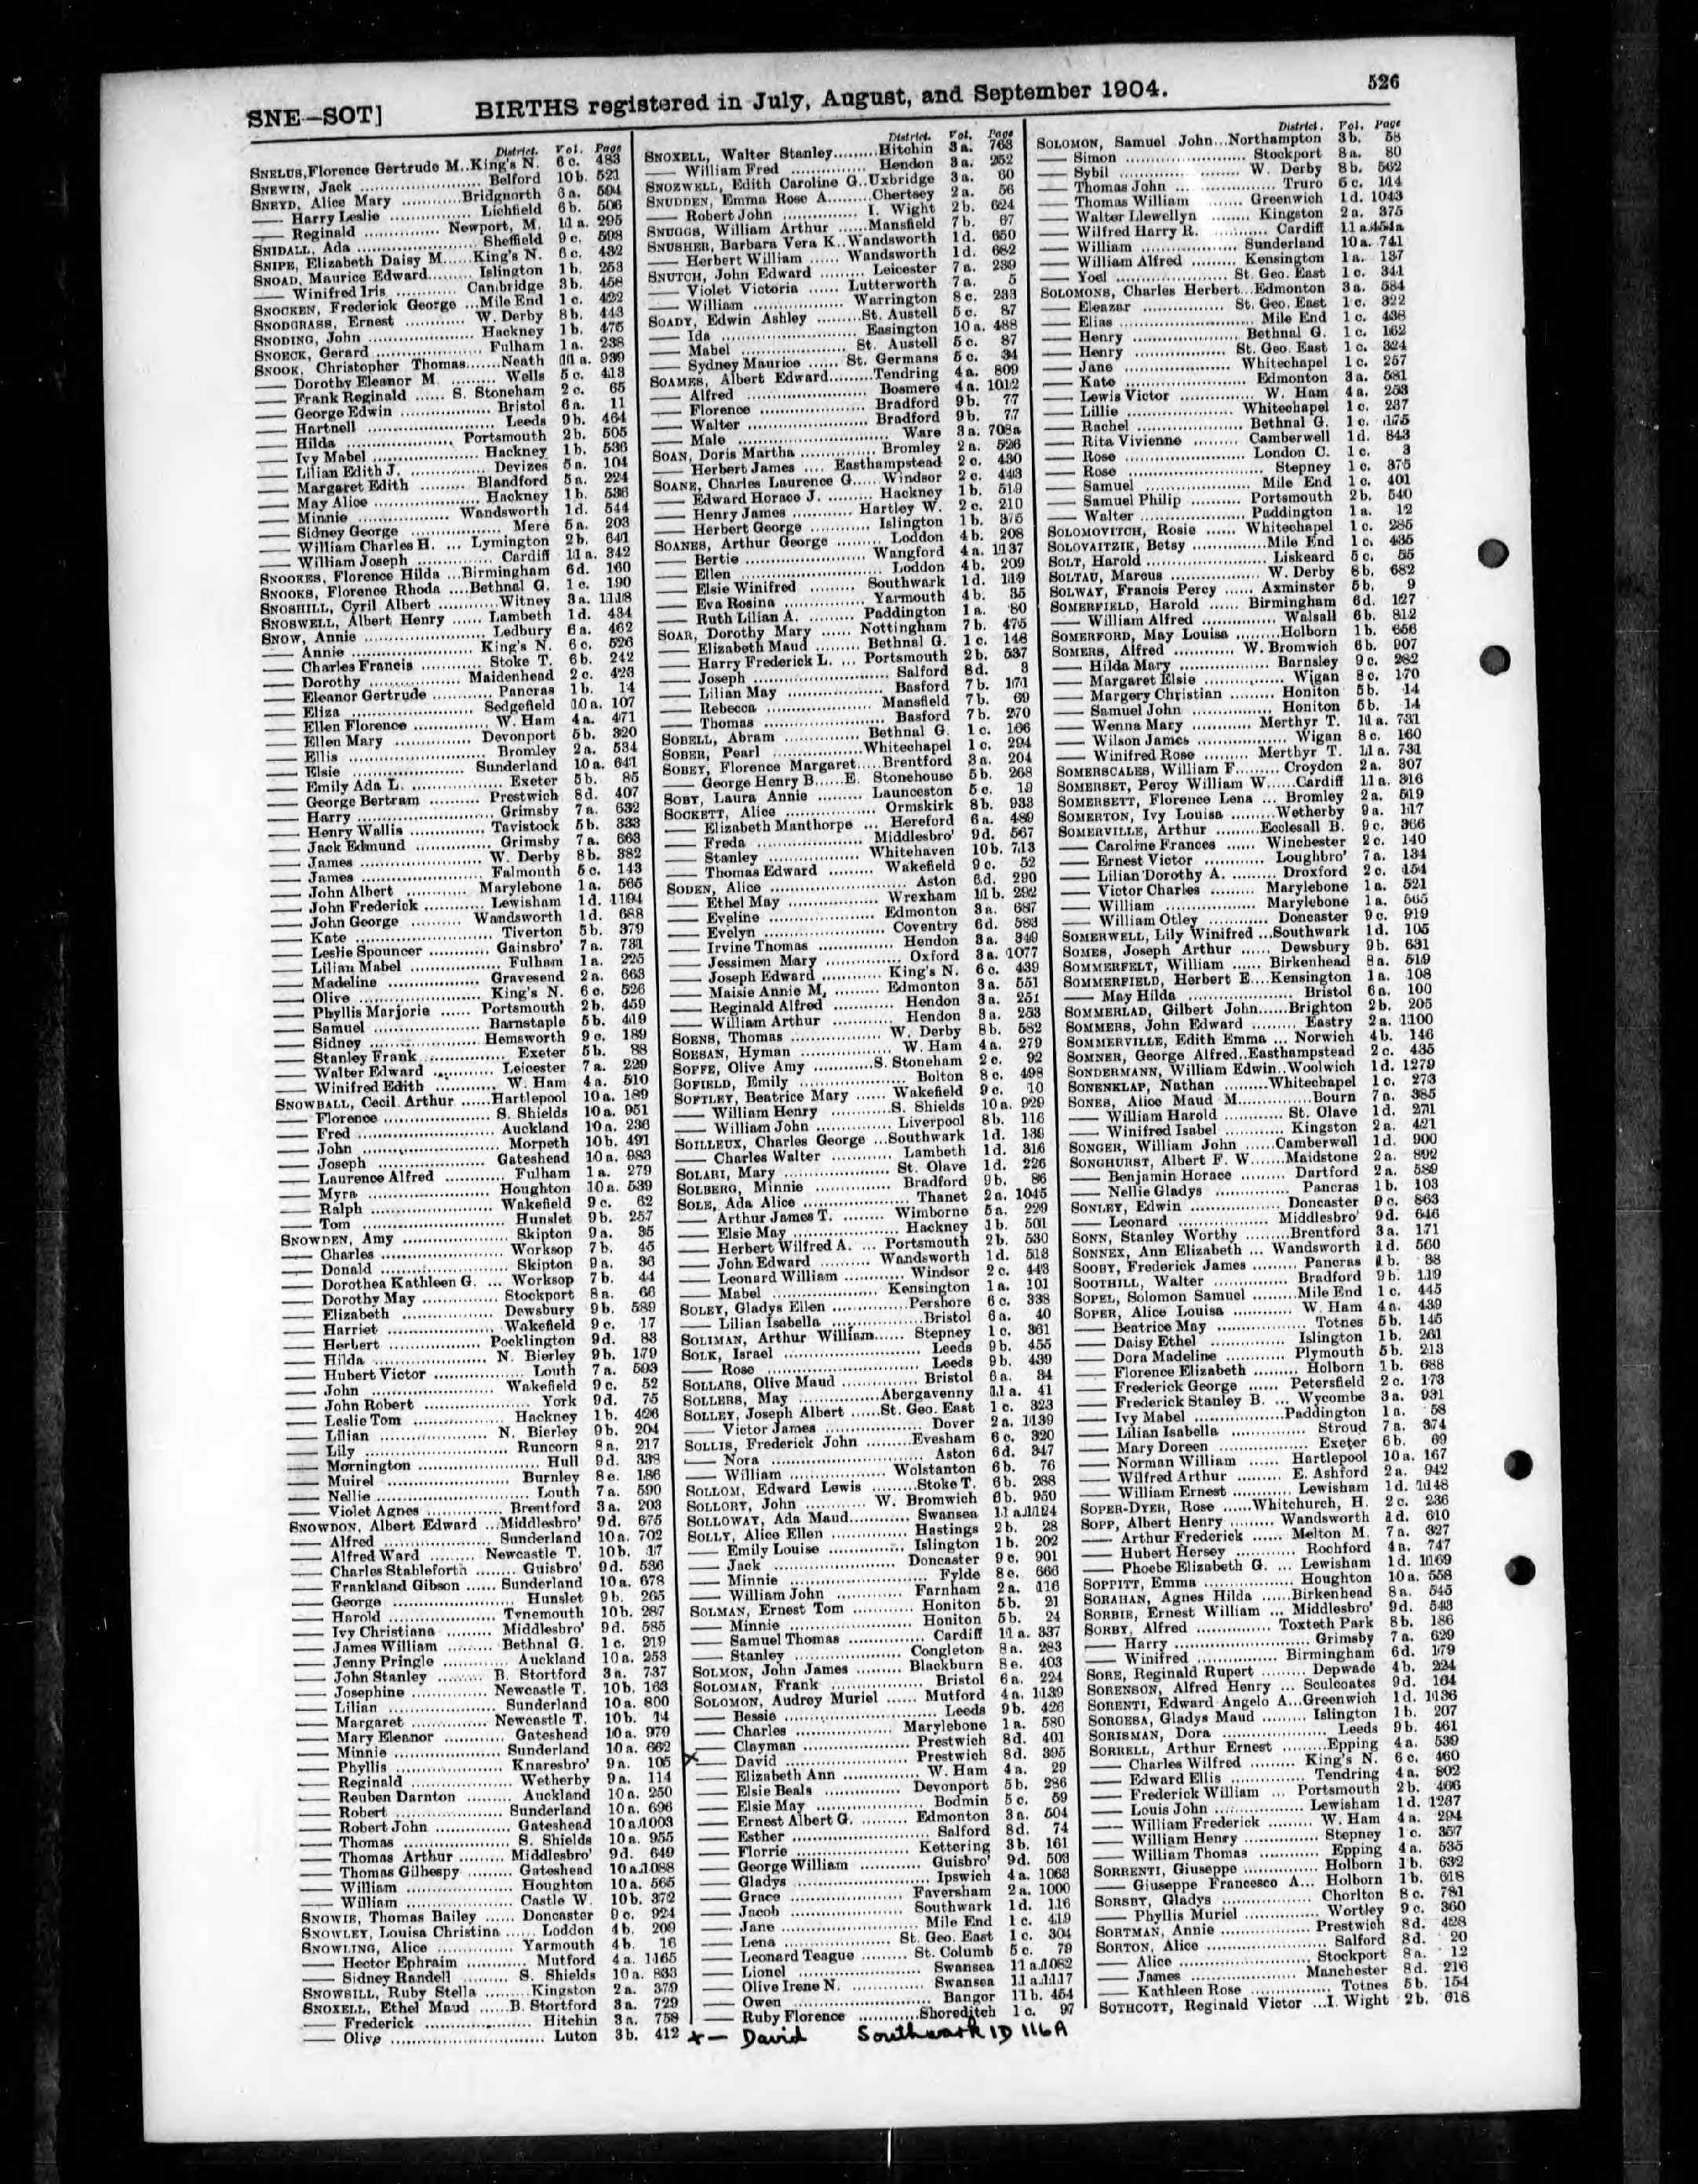 526
SNE—SOT] BIRTHS registered in July, August, and September 1904.
District. Vol. Page
SNELUS, Florence Gertrude M..King's N. 6 c. 483
SNEWIN, Jack ........ Belford 10 b. 521
SNEYD, Alice Mary ........ Bridgnorth 6 a. 594
—— Harry Leslie ........ Lichfield 6 b. 506
—— Reginald ........ Newport, M. 11 a. 295
SNIDALL, Ada ........ Sheffield 9 c. 598
SNIPE, Elizabeth Daisy M...... King's N. 6 c. 432
SNOAD, Maurice Edward........ Islington 1 b. 253
—— Winifred Iris ........ Cambridge 3 b. 458
SNOCKEN, Frederick George ...Mile End 1 c. 422
SNODGRASS, Ernest ........ W. Derby 8 b. 443
SNODING, John ........ Hackney 1 b. 475
SNOECK, Gerard ........ Fulham 1 a. 238
SNOOK, Christopher Thomas....... Neath 11 a. 939
—— Dorothy Eleanor M ........ Wells 5 c. 413
—— Frank Reginald ...... S. Stoneham 2 c. 65
—— George Edwin ........ Bristol 6 a. 11
—— Hartnell ........ Leeds 9 b. 464
—— Hilda ........ Portsmouth 2 b. 505
—— Ivy Mabel ........ Hackney 1 b. 536
—— Lilian Edith J. ........ Devizes 5 a. 104
—— Margaret Edith ........ Blandford 5 a. 224
—— May Alice ........ Hackney 1 b. 536
—— Minnie ........ Wandsworth 1 d. 544
—— Sidney George ........ Mere 5 a. 203
—— William Charles H. ... Lymington 2 b. 641
—— William Joseph ........ Cardiff 11 a. 342
SNOOKES, Florence Hilda ...Birmingham 6 d. 160
SNOOKS, Florence Rhoda ....Bethnal G. 1 c. 190
SNOSHILL, Cyril Albert ........ Witney 3 a. 1118
SNOSWELL, Albert Henry ...... Lambeth 1 d. 434
SNOW, Annie ........ Ledbury 6 a. 462
—— Annie ........ King's N. 6 c. 526
—— Charles Francis ........ Stoke T. 6 b. 242
—— Dorothy ........ Maidenhead 2 c. 423
—— Eleanor Gertrude ........ Pancras 1 b. 14
—— Eliza ........ Sedgefield 10 a. 107
—— Ellen Florence ........ W. Ham 4 a. 471
—— Ellen Mary ........ Devonport 5 b. 320
—— Ellis ........ Bromley 2 a. 534
—— Elsie ........ Sunderland 10 a. 641
—— Emily Ada L. ........ Exeter 5 b. 85
—— George Bertram ........ Prestwich 8 d. 407
—— Harry ........ Grimsby 7 a. 632
—— Henry Wallis ........ Tavistock 5 b. 333
—— Jack Edmund ........ Grimsby 7 a. 663
—— James ........ W. Derby 8 b. 382
—— James ........ Falmouth 5 c. 143
—— John Albert ........ Marylebone 1 a. 565
—— John Frederick ........ Lewisham 1 d. 1194
—— John George ........ Wandsworth 1 d. 688
—— Kate ........ Tiverton 5 b. 379
—— Leslie Spouncer ........ Gainsbro' 7 a. 731
—— Lilian Mabel ........ Fulham 1 a. 225
—— Madeline ........ Gravesend 2 a. 663
—— Olive ........ King's N. 6 c. 526
—— Phyllis Marjorie ...... Portsmouth 2 b. 459
—— Samuel ........ Barnstaple 5 b. 419
—— Sidney ........ Hemsworth 9 c. 189
—— Stanley Frank ........ Exeter 5 b. 88
—— Walter Edward ........ Leicester 7 a. 229
—— Winifred Edith ........ W. Ham 4 a. 510
SNOWBALL, Cecil Arthur ......Hartlepool 10 a. 189
—— Florence ........ S. Shields 10 a. 951
—— Fred ........ Auckland 10 a. 236
—— John ........ Morpeth 10 b. 491
—— Joseph ........ Gateshead 10 a. 983
—— Laurence Alfred ........ Fulham 1 a. 279
—— Myra ........ Houghton 10 a. 539
—— Ralph ........ Wakefield 9 c. 62
—— Tom ........ Hunslet 9 b. 257
SNOWDEN, Amy ........ Skipton 9 a. 35
—— Charles ........ Worksop 7 b. 45
—— Donald ........ Skipton 9 a. 36
—— Dorothea Kathleen G. ... Worksop 7 b. 44
—— Dorothy May ........ Stockport 8 a. 66
—— Elizabeth ........ Dewsbury 9 b. 589
—— Harriet ........ Wakefield 9 c. 17
—— Herbert ........ Pocklington 9 d. 83
—— Hilda ........ N. Bierley 9 b. 179
—— Hubert Victor ........ Louth 7 a. 593
—— John ........ Wakefield 9 c. 52
—— John Robert ........ York 9 d. 75
—— Leslie Tom ........ Hackney 1 b. 426
—— Lilian ........ N. Bierley 9 b. 204
—— Lily ........ Runcorn 8 a. 217
—— Mornington ........ Hull 9 d. 338
—— Muirel ........ Burnley 8 e. 186
—— Nellie ........ Louth 7 a. 590
—— Violet Agnes ........ Brentford 3 a. 203
SNOWDON, Albert Edward ...Middlesbro' 9 d. 675
—— Alfred ........ Sunderland 10 a. 702
—— Alfred Ward ........ Newcastle T. 10 b. 17
—— Charles Stableforth ........ Guisbro' 9 d. 536
—— Frankland Gibson ...... Sunderland 10 a. 678
—— George ........ Hunslet 9 b. 265
—— Harold ........ Tynemouth 10 b. 287
—— Ivy Christiana ........ Middlesbro' 9 d. 585
—— James William ........ Bethnal G. 1 c. 219
—— Jenny Pringle ........ Auckland 10 a. 253
—— John Stanley ........ B. Stortford 3 a. 737
—— Josephine ........ Newcastle T. 10 b. 163
—— Lilian ........ Sunderland 10 a. 800
—— Margaret ........ Newcastle T. 10 b. 14
—— Mary Eleanor ........ Gateshead 10 a. 979
—— Minnie ........ Sunderland 10 a. 662
—— Phyllis ........ Knaresbro' 9 a. 105
—— Reginald ........ Wetherby 9 a. 114
—— Reuben Darnton ........ Auckland 10 a. 250
—— Robert ........ Sunderland 10 a. 696
—— Robert John ........ Gateshead 10 a.1003
—— Thomas ........ S. Shields 10 a. 955
—— Thomas Arthur ........ Middlesbro' 9 d. 649
—— Thomas Gilhespy ........ Gateshead 10 a.1088
—— William ........ Houghton 10 a. 565
—— William ........ Castle W. 10 b. 372
SNOWIE, Thomas Bailey ...... Doncaster 9 c. 924
SNOWLEY, Louisa Christina ...... Loddon 4 b. 209
SNOWLING, Alice ........ Yarmouth 4 b. 16
—— Hector Ephraim ........ Mutford 4 a. 1165
—— Sidney Randell ........ S. Shields 10 a. 833
SNOWSILL, Ruby Stella ........ Kingston 2 a. 379
SNOXELL, Ethel Maud ......B. Stortford 3 a. 729
—— Frederick ........ Hitchin 3 a. 758
—— Olive ........ Luton 3 b. 412
District. Vol. Page
SNOXELL, Walter Stanley.........Hitchin 3 a. 763
—— William Fred ........ Hendon 3 a. 252
SNOZWELL, Edith Caroline G..Uxbridge 3 a. 60
SNUDDEN, Emma Rose A.........Chertsey 2 a. 56
—— Robert John ........ I. Wight 2 b. 624
SNUGGS, William Arthur ......Mansfield 7 b. 67
SNUSHER, Barbara Vera K..Wandsworth 1 d. 650
—— Herbert William ...... Wandsworth 1 d. 682
SNUTCH, John Edward ......... Leicester 7 a. 239
—— Violet Victoria ...... Lutterworth 7 a. 5
—— William ........ Warrington 8 c. 233
SOADY, Edwin Ashley .........St. Austell 5 c. 87
—— Ida ........ Easington 10 a. 488
—— Mabel ........ St. Austell 5 c. 87
—— Sydney Maurice ...... St. Germans 5 c. 34
SOAMES, Albert Edward.........Tendring 4 a. 809
—— Alfred ........ Bosmere 4 a. 1012
—— Florence ........ Bradford 9 b. 77
—— Walter ........ Bradford 9 b. 77
—— Male ........ Ware 3 a. 708a
SOAN, Doris Martha ........ Bromley 2 a. 526
—— Herbert James .... Easthampstead 2 c. 430
SOANE, Charles Laurence G...... Windsor 2 c. 443
—— Edward Horace J. ........ Hackney 1 b. 519
—— Henry James ........ Hartley W. 2 c. 210
—— Herbert George ........ Islington 1 b. 375
SOANES, Arthur George ........ Loddon 4 b. 208
—— Bertie ........ Wangford 4 a. 1137
—— Ellen ........ Loddon 4 b. 209
—— Elsie Winifred ........ Southwark 1 d. 119
—— Eva Rosina ........ Yarmouth 4 b. 35
—— Ruth Lilian A. ........ Paddington 1 a. 80
SOAR, Dorothy Mary ...... Nottingham 7 b. 475
—— Elizabeth Maud ........ Bethnal G. 1 c. 148
—— Harry Frederick L. ... Portsmouth 2 b. 537
—— Joseph ........ Salford 8 d. 3
—— Lilian May ........ Basford 7 b. 171
—— Rebecca ........ Mansfield 7 b. 69
—— Thomas ........ Basford 7 b. 270
SOBELL, Abram ........ Bethnal G. 1 c. 166
SOBER, Pearl ........Whitechapel 1 c. 294
SOBEY, Florence Margaret.....Brentford 3 a. 204
—— George Henry B......E. Stonehouse 5 b. 268
SOBY, Laura Annie ........ Launceston 5 c. 19
SOCKETT, Alice ........ Ormskirk 8 b. 933
—— Elizabeth Manthorpe ... Hereford 6 a. 489
—— Freda ........ Middlesbro' 9 d. 567
—— Stanley ........ Whitehaven 10 b. 713
—— Thomas Edward ........ Wakefield 9 c. 52
SODEN, Alice ........ Aston 6 d. 290
—— Ethel May ........ Wrexham 11 b. 292
—— Eveline ........ Edmonton 3 a. 687
—— Evelyn ........ Coventry 6 d. 583
—— Irvine Thomas ........ Hendon 3 a. 349
—— Jessimen Mary ........ Oxford 3 a. 1077
—— Joseph Edward ........ King's N. 6 c. 439
—— Maisie Annie M. ........ Edmonton 3 a. 551
—— Reginald Alfred ........ Hendon 3 a. 251
—— William Arthur ........ Hendon 3 a. 253
SOENS, Thomas ........ W. Derby 8 b. 582
SOESAN, Hyman ........ W. Ham 4 a. 279
SOFFE, Olive Amy ........S. Stoneham 2 c. 92
SOFIELD, Emily ........ Bolton 8 c. 498
SOFTLEY, Beatrice Mary ...... Wakefield 9 c. 10
—— William Henry ........S. Shields 10 a. 929
—— William John ........ Liverpool 8 b. 116
SOILLEUX, Charles George ...Southwark 1 d. 136
—— Charles Walter ........ Lambeth 1 d. 316
SOLARI, Mary ........ St. Olave 1 d. 226
SOLBERG, Minnie ........ Bradford 9 b. 86
SOLE, Ada Alice ........ Thanet 2 a. 1045
—— Arthur James T. ........ Wimborne 5 a. 229
—— Elsie May ........ Hackney 1 b. 501
—— Herbert Wilfred A. ... Portsmouth 2 b. 530
—— John Edward ........ Wandsworth 1 d. 518
—— Leonard William ........ Windsor 2 c. 443
—— Mabel ........ Kensington 1 a. 101
SOLEY, Gladys Ellen ........ Pershore 6 c. 338
—— Lilian Isabella ........Bristol 6 a. 40
SOLIMAN, Arthur William...... Stepney 1 c. 361
SOLK, Israel ........ Leeds 9 b. 455
—— Rose ........ Leeds 9 b. 439
SOLLARS, Olive Maud ........ Bristol 6 a. 34
SOLLERS, May ........Abergavenny 11 a. 41
SOLLEY, Joseph Albert ......St. Geo. East 1 c. 323
—— Victor James ........ Dover 2 a. 1139
SOLLIS, Frederick John .........Evesham 6 c. 320
—— Nora ........ Aston 6 d. 347
—— William ........ Wolstanton 6 b. 76
SOLLOM, Edward Lewis ........Stoke T. 6 b. 288
SOLLORY, John ........ W. Bromwich 6 b. 950
SOLLOWAY, Ada Maud........... Swansea 11 a.1124
SOLLY, Alice Ellen ........ Hastings 2 b. 28
—— Emily Louise ........ Islington 1 b. 202
—— Jack ........ Doncaster 9 c. 901
—— Minnie ........ Fylde 8 e. 666
—— William John ........ Farnham 2 a. 116
SOLMAN, Ernest Tom ........ Honiton 5 b. 21
—— Minnie ........ Honiton 5 b. 24
—— Samuel Thomas ........ Cardiff 11 a. 337
—— Stanley ........ Congleton 8 a. 283
SOLMON, John James ........ Blackburn 8 e. 403
SOLOMAN, Frank ........ Bristol 6 a. 224
SOLOMON, Audrey Muriel ...... Mutford 4 a. 1139
—— Bessie ........ Leeds 9 b. 426
—— Charles ........ Marylebone 1 a. 580
—— Clayman ........ Prestwich 8 d. 401
x —— David ........ Prestwich 8 d. 395
—— Elizabeth Ann ........ W. Ham 4 a. 29
—— Elsie Beals ........ Devonport 5 b. 286
—— Elsie May ........ Bodmin 5 c. 59
—— Ernest Albert G. ........ Edmonton 3 a. 504
—— Esther ........ Salford 8 d. 74
—— Florrie ........ Kettering 3 b. 161
—— George William ........ Guisbro' 9 d. 503
—— Gladys ........ Ipswich 4 a. 1063
—— Grace ........ Faversham 2 a. 1000
—— Jacob ........ Southwark 1 d. 116
—— Jane ........ Mile End 1 c. 419
—— Lena ........ St. Geo. East 1 c. 304
—— Leonard Teague ........ St. Columb 5 c. 79
—— Lionel ........ Swansea 11 a.1082
—— Olive Irene N. ........ Swansea 11 a.1117
—— Owen ........ Bangor 11 b. 454
—— Ruby Florence ........Shoreditch 1 c. 97
x— David Southwark 1D 116A
District. Vol. Page
SOLOMON, Samuel John...Northampton 3 b. 58
—— Simon ........ Stockport 8 a. 80
—— Sybil ........ W. Derby 8 b. 562
—— Thomas John ........ Truro 5 c. 114
—— Thomas William ........ Greenwich 1 d. 1043
—— Walter Llewellyn ........ Kingston 2 a. 375
—— Wilfred Harry R. ........ Cardiff 11 a.454a
—— William ........ Sunderland 10 a. 741
—— William Alfred ........ Kensington 1 a. 137
—— Yoel ........ St. Geo. East 1 c. 341
SOLOMONS, Charles Herbert...Edmonton 3 a. 584
—— Eleazar ........ St. Geo. East 1 c. 322
—— Elias ........ Mile End 1 c. 438
—— Henry ........ Bethnal G. 1 c. 162
—— Henry ........ St. Geo. East 1 c. 324
—— Jane ........ Whitechapel 1 c. 257
—— Kate ........ Edmonton 3 a. 581
—— Lewis Victor ........ W. Ham 4 a. 253
—— Lillie ........ Whitechapel 1 c. 237
—— Rachel ........ Bethnal G. 1 c. 175
—— Rita Vivienne ........ Camberwell 1 d. 843
—— Rose ........ London C. 1 c. 3
—— Rose ........ Stepney 1 c. 375
—— Samuel ........ Mile End 1 c. 401
—— Samuel Philip ........ Portsmouth 2 b. 540
—— Walter ........ Paddington 1 a. 12
SOLOMOVITCH, Rosie ...... Whitechapel 1 c. 285
SOLOVAITZIK, Betsy ........Mile End 1 c. 435
SOLT, Harold ........ Liskeard 5 c. 55
SOLTAU, Marcus ........ W. Derby 8 b. 682
SOLWAY, Francis Percy ...... Axminster 5 b. 9
SOMERFIELD, Harold ...... Birmingham 6 d. 127
—— William Alfred ........ Walsall 6 b. 812
SOMERFORD, May Louisa .........Holborn 1 b. 656
SOMERS, Alfred ........ W. Bromwich 6 b. 907
—— Hilda Mary ........ Barnsley 9 c. 282
—— Margaret Elsie ........ Wigan 8 c. 170
—— Margery Christian ........ Honiton 5 b. 14
—— Samuel John ........ Honiton 5 b. 14
—— Wenna Mary ........ Merthyr T. 11 a. 731
—— Wilson James ........ Wigan 8 c. 160
—— Winifred Rose ........ Merthyr T. 11 a. 731
SOMERSCALES, William F......... Croydon 2 a. 307
SOMERSET, Percy William W......Cardiff 11 a. 316
SOMERSETT, Florence Lena ... Bromley 2 a. 519
SOMERTON, Ivy Louisa .........Wetherby 9 a. 117
SOMERVILLE, Arthur .........Ecclesall B. 9 c. 366
—— Caroline Frances ...... Winchester 2 c. 140
—— Ernest Victor ........ Loughbro' 7 a. 134
—— Lilian Dorothy A. ........ Droxford 2 c. 154
—— Victor Charles ........ Marylebone 1 a. 521
—— William ........ Marylebone 1 a. 565
—— William Otley ........ Doncaster 9 c. 919
SOMERWELL, Lily Winifred ...Southwark 1 d. 105
SOMES, Joseph Arthur ...... Dewsbury 9 b. 631
SOMMERFELT, William ...... Birkenhead 8 a. 519
SOMMERFIELD, Herbert E....Kensington 1 a. 108
—— May Hilda ........ Bristol 6 a. 100
SOMMERLAD, Gilbert John......Brighton 2 b. 205
SOMMERS, John Edward ......... Eastry 2 a. 1100
SOMMERVILLE, Edith Emma ... Norwich 4 b. 146
SOMNER, George Alfred..Easthampstead 2 c. 435
SONDERMANN, William Edwin..Woolwich 1 d. 1279
SONENKLAP, Nathan .........Whitechapel 1 c. 273
SONES, Alice Maud M.............Bourn 7 a. 385
—— William Harold ........ St. Olave 1 d. 271
—— Winifred Isabel ........ Kingston 2 a. 421
SONGER, William John ......Camberwell 1 d. 900
SONGHURST, Albert F. W.......Maidstone 2 a. 892
—— Benjamin Horace ........ Dartford 2 a. 589
—— Nellie Gladys ........ Pancras 1 b. 103
SONLEY, Edwin ........ Doncaster 9 c. 863
—— Leonard ........ Middlesbro' 9 d. 646
SONN, Stanley Worthy .........Brentford 3 a. 171
SONNEX, Ann Elizabeth ... Wandsworth 1 d. 560
SOOBY, Frederick James ......... Pancras 1 b. 38
SOOTHILL, Walter ........ Bradford 9 b. 119
SOPEL, Solomon Samuel .........Mile End 1 c. 445
SOPER, Alice Louisa ........ W. Ham 4 a. 439
—— Beatrice May ........ Totnes 5 b. 145
—— Daisy Ethel ........ Islington 1 b. 261
—— Dora Madeline ........ Plymouth 5 b. 213
—— Florence Elizabeth ........ Holborn 1 b. 688
—— Frederick George ...... Petersfield 2 c. 173
—— Frederick Stanley B. ... Wycombe 3 a. 931
—— Ivy Mabel ........Paddington 1 a. 58
—— Lilian Isabella ........ Stroud 7 a. 374
—— Mary Doreen ........ Exeter 6 b. 69
—— Norman William ...... Hartlepool 10 a. 167
—— Wilfred Arthur ........ E. Ashford 2 a. 942
—— William Ernest ........ Lewisham 1 d. 1148
SOPER-DYER, Rose ......Whitchurch, H. 2 c. 236
SOPP, Albert Henry ........ Wandsworth 1 d. 610
—— Arthur Frederick ...... Melton M. 7 a. 327
—— Hubert Hersey ........ Rochford 4 a. 747
—— Phoebe Elizabeth G. ... Lewisham 1 d. 1169
SOPPITT, Emma ........ Houghton 10 a. 558
SORAHAN, Agnes Hilda ......Birkenhead 8 a. 545
SORBIE, Ernest William ... Middlesbro' 9 d. 543
SORBY, Alfred ........ Toxteth Park 8 b. 186
—— Harry ........ Grimsby 7 a. 629
—— Winifred ........ Birmingham 6 d. 179
SORE, Reginald Rupert ......... Depwade 4 b. 224
SORENSON, Alfred Henry ... Sculcoates 9 d. 164
SORENTI, Edward Angelo A...Greenwich 1 d. 1136
SORGESA, Gladys Maud ......... Islington 1 b. 207
SORISMAN, Dora ........ Leeds 9 b. 461
SORRELL, Arthur Ernest .........Epping 4 a. 539
—— Charles Wilfred ........ King's N. 6 c. 460
—— Edward Ellis ........ Tendring 4 a. 802
—— Frederick William ... Portsmouth 2 b. 466
—— Louis John ........ Lewisham 1 d. 1237
—— William Frederick ........ W. Ham 4 a. 294
—— William Henry ........ Stepney 1 c. 357
—— William Thomas ........ Epping 4 a. 535
SORRENTI, Giuseppe ........ Holborn 1 b. 632
—— Giuseppe Francesco A... Holborn 1 b. 618
SORSBY, Gladys ........ Chorlton 8 c. 781
—— Phyllis Muriel ........ Wortley 9 c. 360
SORTMAN, Annie ........ Prestwich 8 d. 428
SORTON, Alice ........ Salford 8 d. 20
—— Alice ........ Stockport 8 a. 12
—— James ........ Manchester 8 d. 216
—— Kathleen Rose ........ Totnes 5 b. 154
SOTHCOTT, Reginald Victor ...I. Wight 2 b. 618